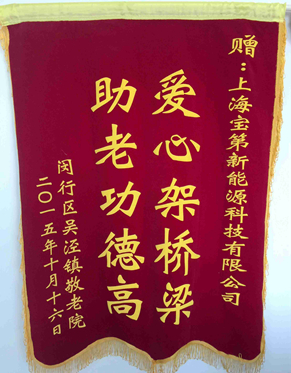 赠：上海宝第新能源科技有限公司
爱心架桥梁
助老功德高
闵行区吴泾镇敬老院
二〇一五年十月十六日